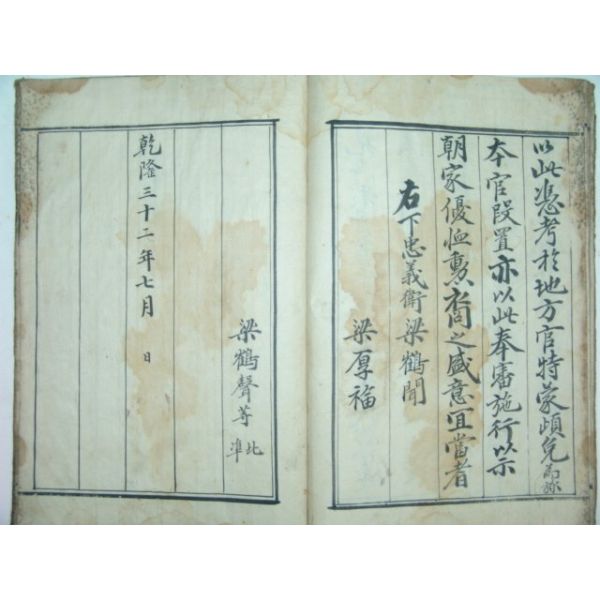 以此憑考於地方官特蒙頉免爲旀
本官設置亦以此奉審施行以示
朝家優恤勳裔之盛意宜當者
右下忠義衛梁鶴聞
梁厚福
梁鶴聲等
此
準
乾隆三十二年七月 日